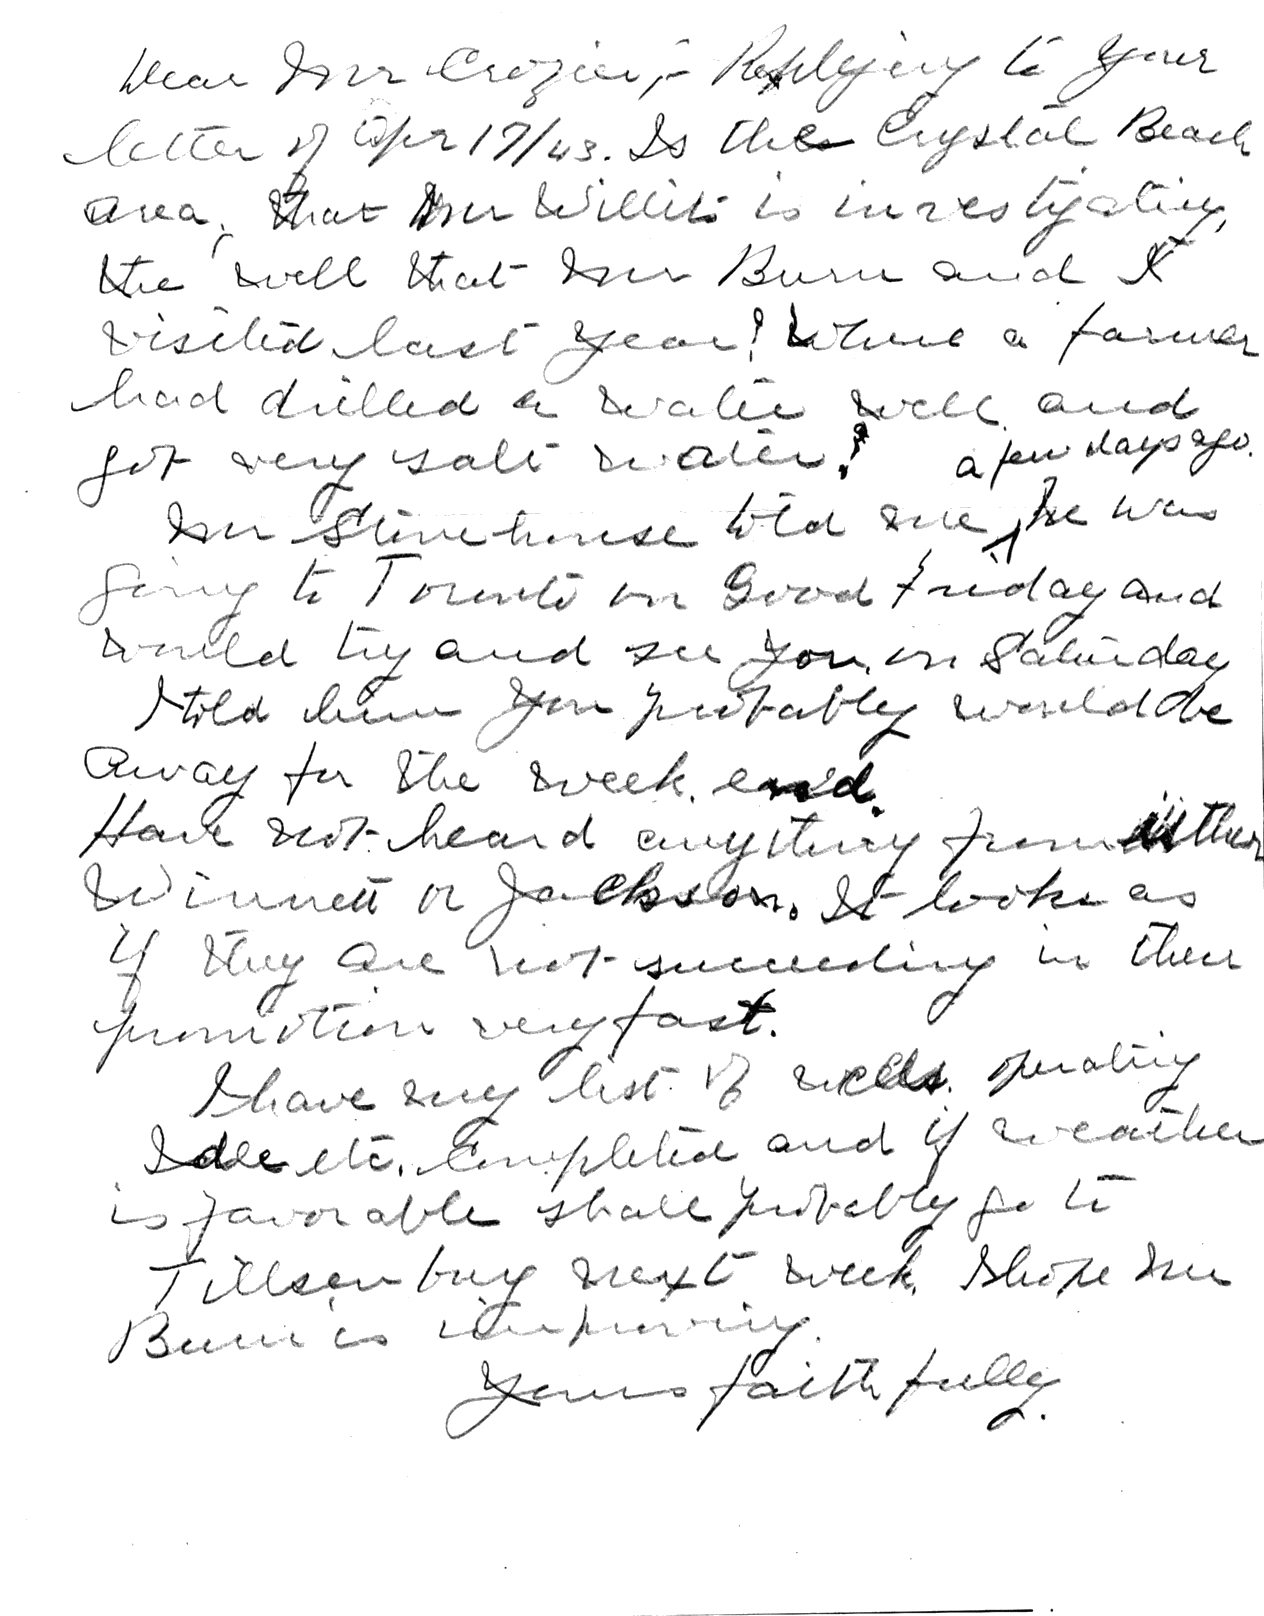 Dear Mr Crozier,- Replying to your
letter of Apr 17/43. Is the Crystal Beach
area, that Mr Willis is investigating,
the well that Mr Burn and I
visited last year? Where a farmer
had drilled a water well and
got very salt water?
a few days ago.
Mr Stonehouse told me ^ he was
going to Toronto on Good Friday and
would try and see you, on Saturday
I told him you probably would be
away for the week end.
Have not heard anything from either
Winnett or Jackson. It looks as
if they are not succeeding in their
promotion very fast.
I have my list of wells. operating
Idle etc. Completed and if weather
is favorable shall probably go to
Tillsonburg next week. I hope Mr
Burn is improving.
Yours faithfully.